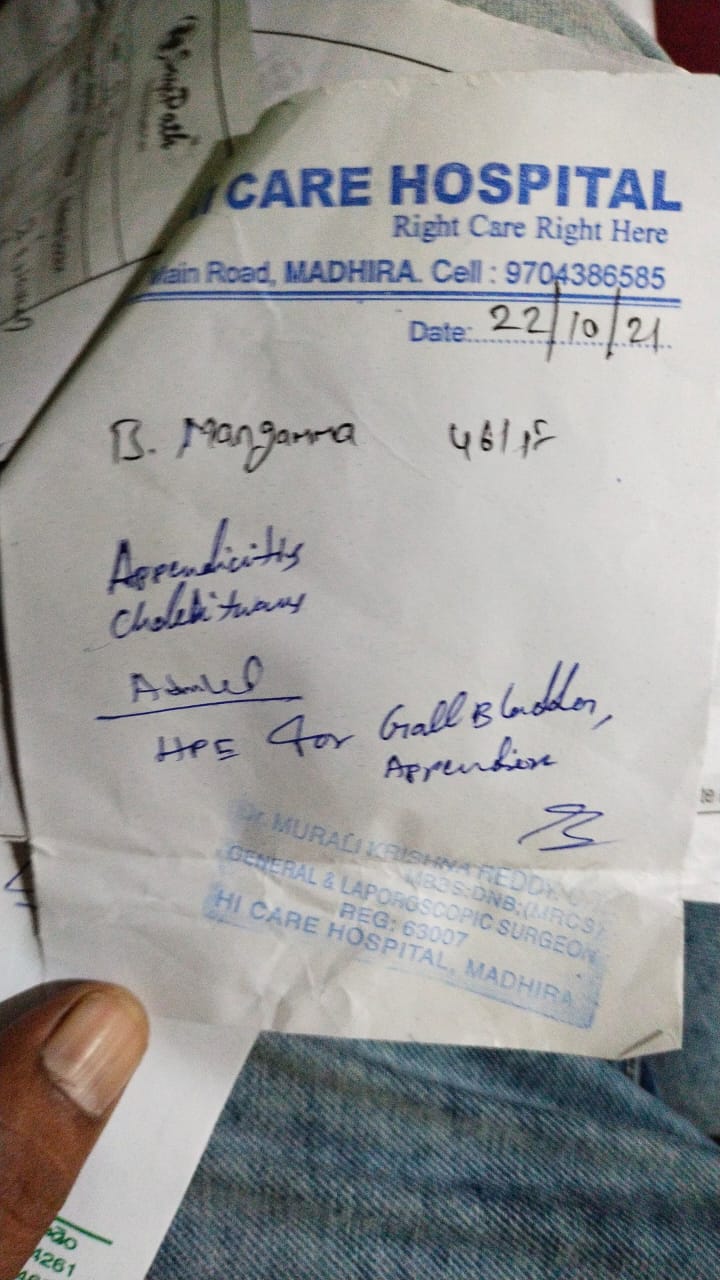 HI CARE HOSPITAL
Right Care Right Here
Main Road, MADHIRA. Cell : 9704386585
Date: 22/10/21
B. Mangamma 46/F
Appendicitis
HPE for Gall Bladder,
Appendix
Dr. MURALI KRISHNA REDDY
MBBS;DNB;(MRCS)
GENERAL & LAPOROSCOPIC SURGEON
REG: 63007
HI CARE HOSPITAL, MADHIRA
4261